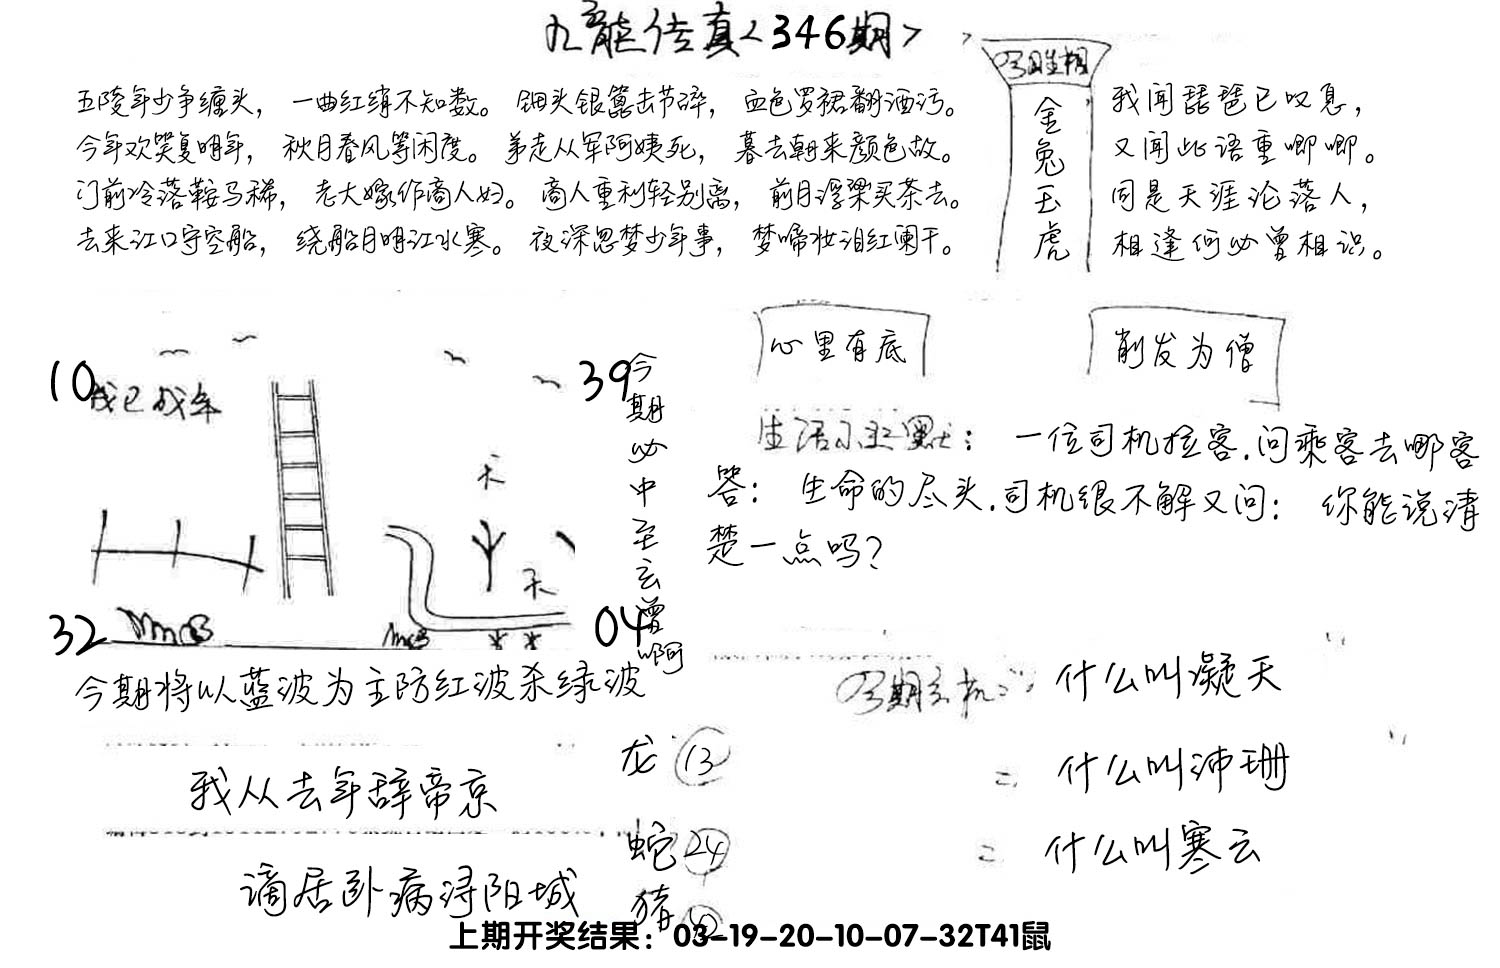 九龙传真<346期>
今期生相
金兔玉虎
五陵年少争缠头，一曲红绡不知数。钿头银篦击节碎，血色罗裙翻酒污。
今年欢笑复明年，秋月春风等闲度。弟走从军阿姨死，暮去朝来颜色故。
门前冷落鞍马稀，老大嫁作商人妇。商人重利轻别离，前月浮梁买茶去。
去来江口守空船，绕船月明江水寒。夜深忽梦少年事，梦啼妆泪红阑干。
我闻琵琶已叹息，
又闻此语重唧唧。
同是天涯沦落人，
相逢何必曾相识。
10
我已成年
39
天
天
32
04
今期必中至玄曾啊
今期将以蓝波为主防红波杀绿波
心里有底
削发为僧
一位司机拉客.问乘客去哪客
答：生命的尽头.司机很不解又问：你能说清
楚一点吗？
什么叫凝天
什么叫沛珊
什么叫寒云
我从去年辞帝京
谪居卧病浔阳城
龙 13
蛇 24
猪
上期开奖结果：03-19-20-10-07-32T41鼠